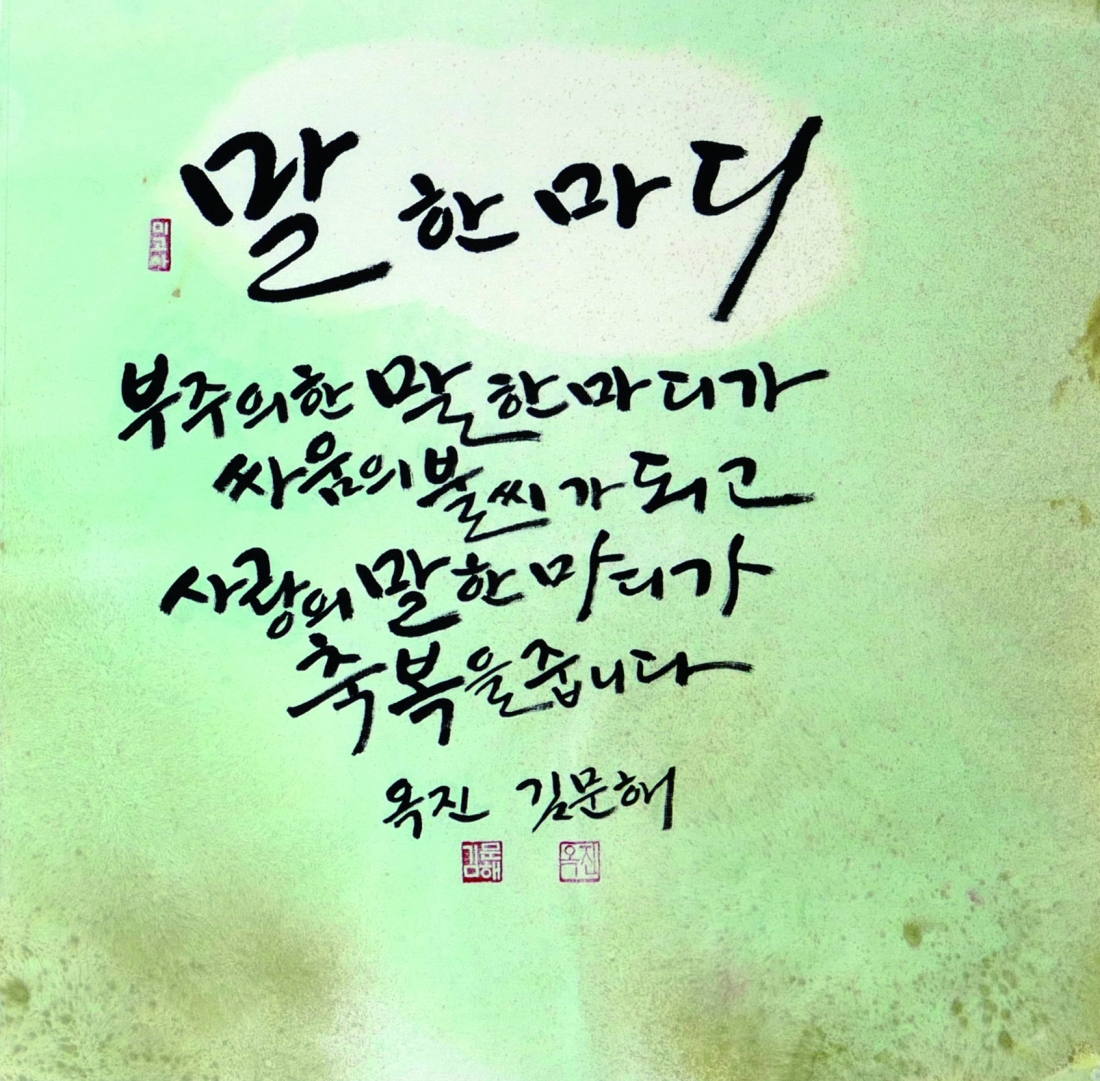 말 한 마디
미고사
부주의한 말 한마디가
싸움의 불씨가 되고
사랑의 말 한 마디가
축복을 줍니다
옥진 김문해
김문해 옥진